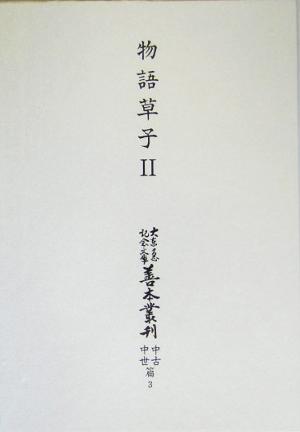 物語草子II
大東急
記念文庫
善本叢刊
中古
中世
篇3